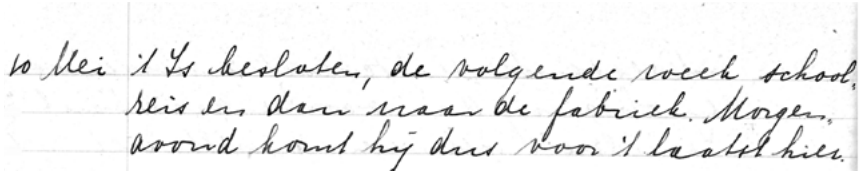 10 Mei 't Is besloten, de volgende week school-
reis en dan naar de fabriek. Morgen-
avond komt hij dus voor 't laatst hier.